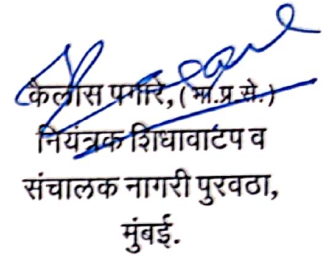 कैलास पगारे, ( भा.प्र.से.)
नियंत्रक शिधावाटप व
संचालक नागरी पुरवठा,
मुंबई.